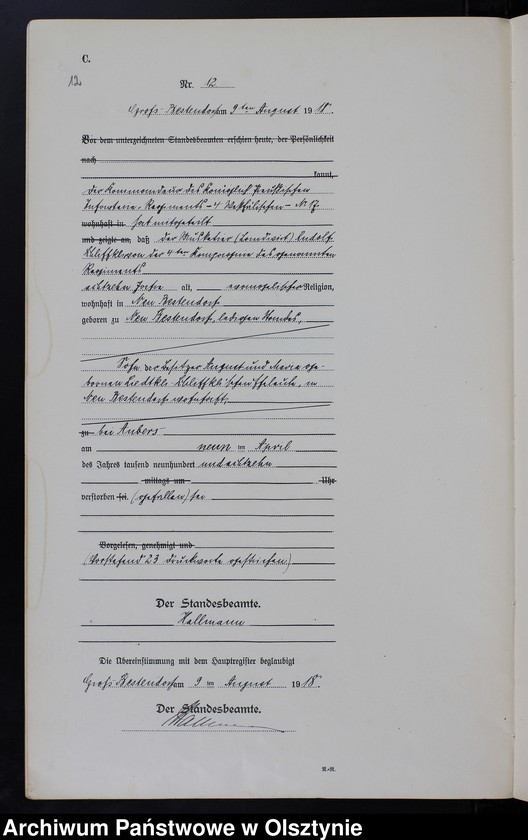 C.
12
Nr. 12
Groß-Bestendorf am 9ten August 1918.
Vor dem unterzeichneten Standesbeamten erschien heute, der Persönlichkeit
nach
kannt,
Der Kommandeur des Königlich Preußischen
Infanterie-Regiments - 4 Westfälischen - Nr 17
wohnhaft in hat mitgeteilt
und zeigte an, daß der Musketier (Landwirt) Rudolf
der 4ten Kompagnie des genannten
Regiments
achtzehn Jahre alt, evangelischer Religion,
wohnhaft in Neu Bestendorf
geboren zu Neu Bestendorf, ledigen Standes,
Sohn der Besitzer August und Maria ge-
borenen Eheleute, in
Neu Bestendorf wohnhaft,
zu bei Aubers
am neun ten April
des Jahres tausend neunhundert und achtzehn
mittags um Uhr
verstorben sei. (gefallen) sei
Vorgelesen, genehmigt und
(Vorstehend 23 Druckworte gestrichen.)
Der Standesbeamte.
Hallmann
Die Übereinstimmung mit dem Hauptregister beglaubigt
Groß-Bestendorf am 9 ten August 1918.
Der Standesbeamte.
Hallmann
Archiwum Państwowe w Olsztynie